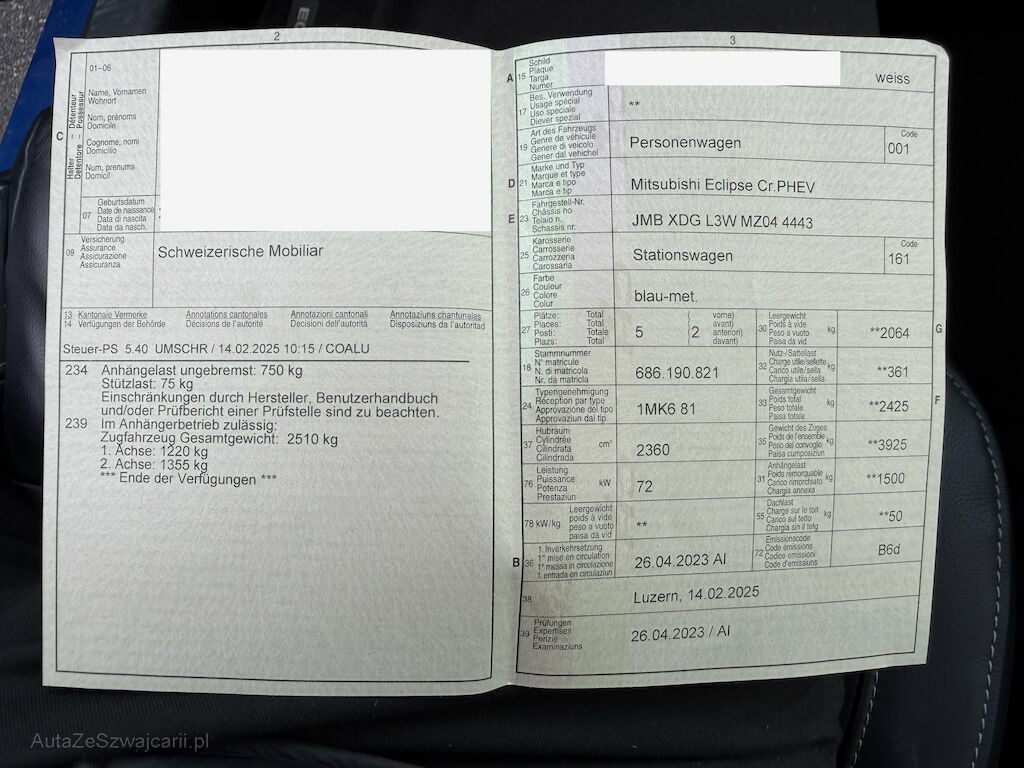 2
01-06
Name, Vornamen
Wohnort
Nom, prénoms
Domicile
Cognome, nomi
Domicilio
Num, prenums
Domicil
C
Halter – Détenteur
Detentore – Possessur
07
Geburtsdatum
Date de naissance
Data di nascita
Data da nasch.
09
Versicherung
Assurance
Assicurazione
Assicuranza
Schweizerische Mobiliar
13 Kantonale Vermerke Annotations cantonales Annotazioni cantonali Annotaziuns chantunalas
14 Verfügungen der Behörde Décisions de l'autorité Decisioni dell'autorità Disposiziuns da l'autoritad
Steuer-PS 5.40 UMSCHR / 14.02.2025 10:15 / COALU
234 Anhängelast ungebremst: 750 kg
Stützlast: 75 kg
Einschränkungen durch Hersteller, Benutzerhandbuch
und/oder Prüfbericht einer Prüfstelle sind zu beachten.
239 Im Anhängerbetrieb zulässig:
Zugfahrzeug Gesamtgewicht: 2510 kg
1. Achse: 1220 kg
2. Achse: 1355 kg
*** Ende der Verfügungen ***
3
A 15
Schild
Plaque
Targa
Numer
weiss
17
Bes. Verwendung
Usage spécial
Uso speciale
Diever spezial
**
19
Art des Fahrzeugs
Genre de véhicule
Genere di veicolo
Gener dal vehichel
Personenwagen
Code
001
D 21
Marke und Typ
Marque et type
Marca e tipo
Marca e tip
Mitsubishi Eclipse Cr.PHEV
E 23
Fahrgestell-Nr.
Châssis no
Telaio n.
Schassis nr.
JMB XDG L3W MZ04 4443
25
Karosserie
Carrosserie
Carrozzeria
Carossaria
Stationswagen
Code
161
26
Farbe
Couleur
Colore
Colur
blau-met.
27
Plätze: Total
Places: Total
Posti: Totale
Plazs: Total
5 (2
vorne)
avant)
anteriori)
davant)
30
Leergewicht
Poids à vide
Peso a vuoto
Paisa da vid
kg
**2064
G
18
Stammnummer
N° matricule
N. di matricola
Nr. da matricla
686.190.821
32
Nutz-/Sattellast
Charge utile/sellette
Carico utile/sella
Chargia utila/sella
kg
**361
24
Typengenehmigung
Réception par type
Approvazione del tipo
Approvaziun dal tip
1MK6 81
33
Gesamtgewicht
Poids total
Peso totale
Paisa totala
kg
**2425
F
37
Hubraum
Cylindrée
Cilindrata
Cilindrada
cm³
2360
35
Gewicht des Zuges
Poids de l'ensemble
Peso del convoglio
Paisa cumposiziun
kg
**3925
76
Leistung
Puissance
Potenza
Prestaziun
kW
72
31
Anhängelast
Poids remorquable
Carico rimorchiato
Chargia annexa
kg
**1500
78 kW/kg
Leergewicht
poids à vide
peso a vuoto
paisa da vid
**
55
Dachlast
Charge sur le toit
Carico sul tetto
Chargia sin il tetg
kg
**50
B 36
1. Inverkehrsetzung
1re mise en circulation
1a messa in circolazione
1. entrada en circulaziun
26.04.2023 AI
72
Emissionscode
Code émissions
Codice emissioni
Code d'emissiuns
B6d
38
Luzern, 14.02.2025
39
Prüfungen
Expertises
Perizie
Examinaziuns
26.04.2023 / AI
AutaZeSzwajcarii.pl